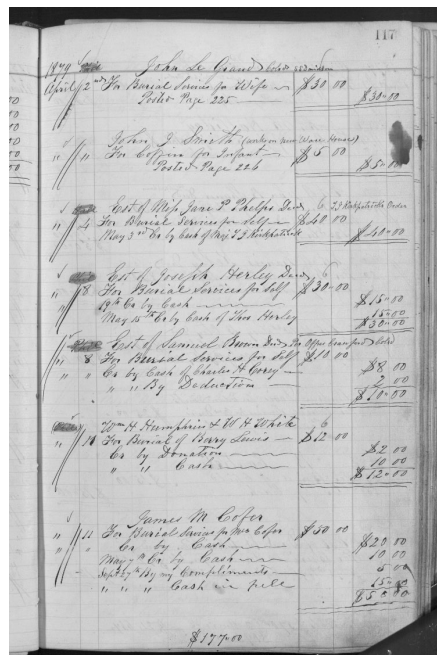 117
1879 John Le Grand
April 2nd For Burial Services for Wife $30 00
Posted Page 225 $30-00
John J Smith
" " For Coffin for Infant $5 00
Posted Page 226 $5-00
Est of Miss Jane P Phelps Decd 6 T J Kirkpatrick Order
" 4 For Burial Services for Self $40 00
May 3rd Cr by Cash of T J Kirkpatrick $40-00
Est of Joseph Herley Decd 6
" 8 For Burial Services for Self $30-00
19th Cr by Cash $15-00
May 15th Cr by Cash of Thos Herley 15-00
$30-00
Est of Samuel Brown Decd
" 8 For Burial Services for Self $10 00
" " Cr by Cash of Charles H Corey $8 00
" " By Deduction 2 00
$10-00
Wm H Humphries & W H White 6
" 10 For Burial of Berry Lewis $12 00
Cr by Donation $2 00
" " Cash 10 00
$12-00
James M Cofer
" 11 For Burial Services for Mrs Cofer $50 00
" " Cr by Cash $20 00
May Cr by Cash 10 00
Sept 27th By my Compliments 5 00
" " Cash in 15-00
$50 00
$177-00